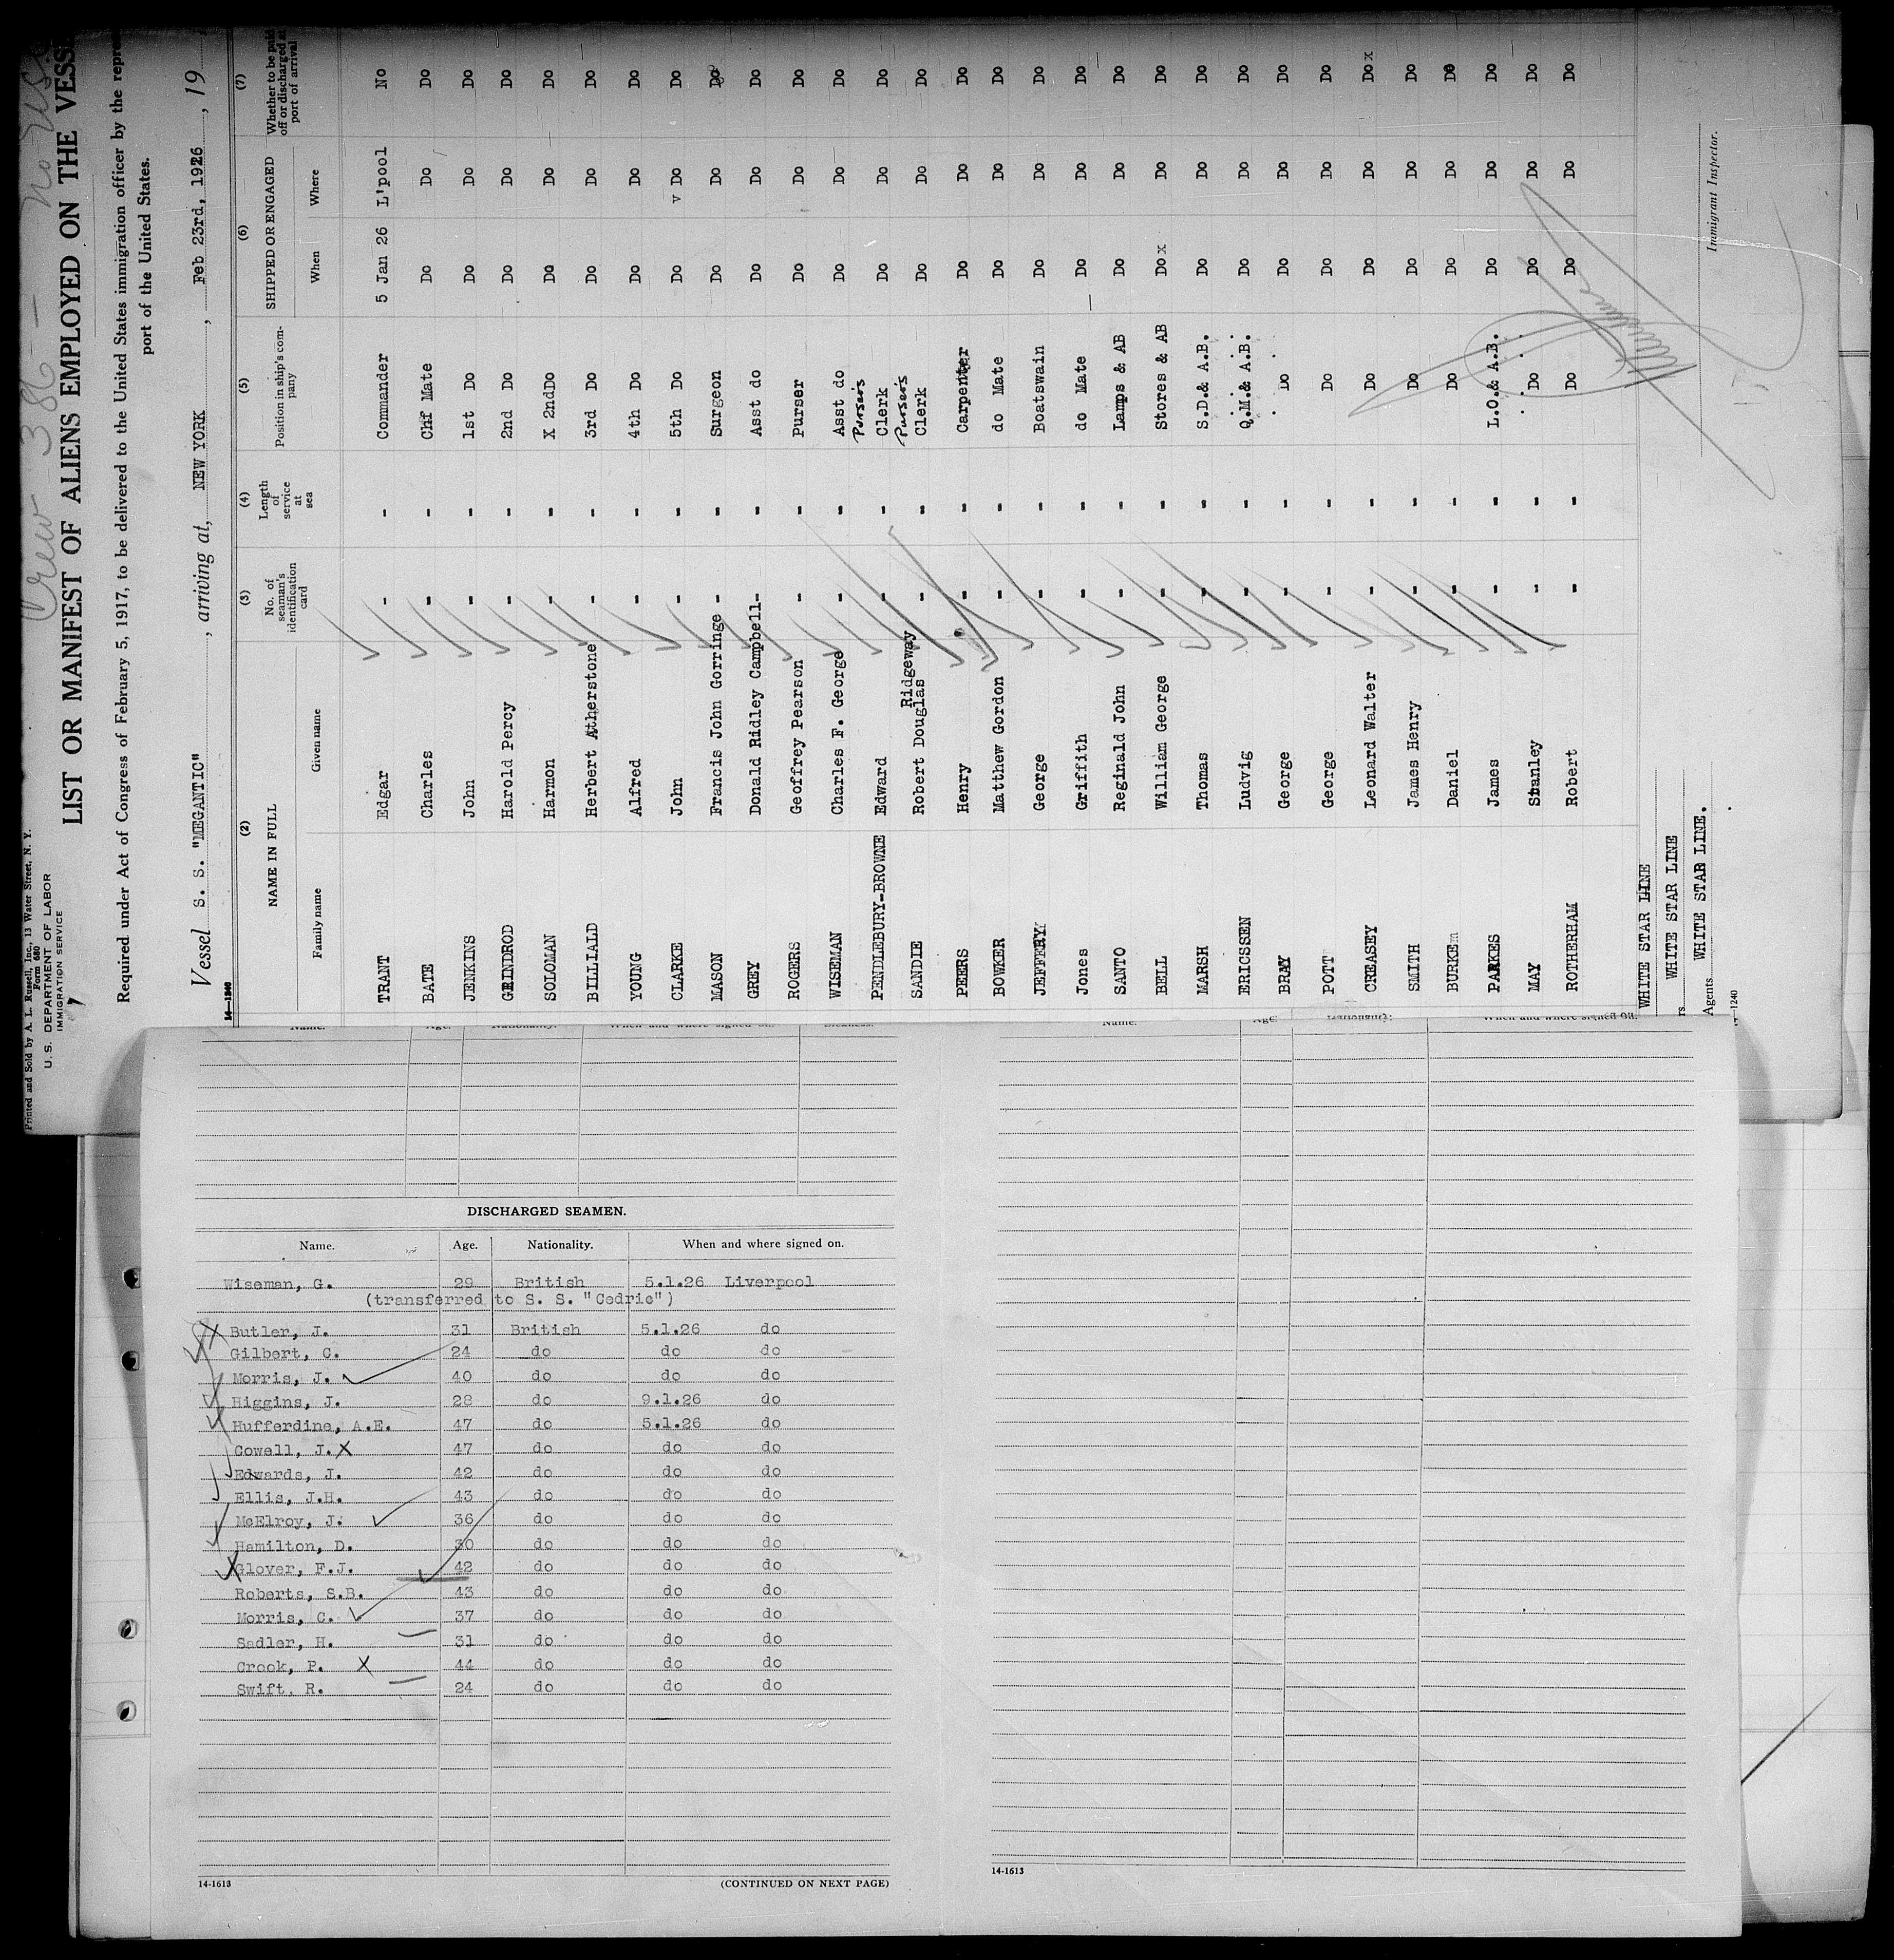 Crew 386 — No US.
Printed and Sold by A. L. Russell, Inc., 13 Water Street, N. Y.
Form 680
U. S. DEPARTMENT OF LABOR
IMMIGRATION SERVICE
LIST OR MANIFEST OF ALIENS EMPLOYED ON THE VESS
Required under Act of Congress of February 5, 1917, to be delivered to the United States immigration officer by the repre
port of the United States.
Vessel S. S. "MEGANTIC" , arriving at, NEW YORK , Feb 23rd, 1926 , 19
14—1240
(2) (3) (4) (5) (6) (7)
NAME IN FULL No. of seaman's identification card Length of service at sea Position in ship's company SHIPPED OR ENGAGED Whether to be paid off or discharged at port of arrival
Family name Given name When Where
TRANT Edgar - - Commander 5 Jan 26 L'pool No
BATE Charles - - Chf Mate Do Do Do
JENKINS John - - 1st Do Do Do Do
GRINDROD Harold Percy - - 2nd Do Do Do Do
SOLOMAN Harmon - - X 2ndDo Do Do Do
BILLIALD Herbert Atherstone - - 3rd Do Do Do Do
YOUNG Alfred - - 4th Do Do Do Do
CLARKE John - - 5th Do Do v Do Do
MASON Francis John Gorringe - - Surgeon Do Do Do
GREY Donald Ridley Campbell - - Asst do Do Do Do
ROGERS Geoffrey Pearson - - Purser Do Do Do
WISEMAN Charles F. George - - Asst do Do Do Do
PENDLEBURY-BROWNE Edward - - Pursers Clerk Do Do Do
SANDIE Robert Douglas Ridgeway - - Pursers Clerk Do Do Do
PEERS Henry - - Carpenter Do Do Do
BOWKER Matthew Gordon - - do Mate Do Do Do
JEFFERY George - - Boatswain Do Do Do
Jones Griffith - - do Mate Do Do Do
SANTO Reginald John - - Lamps & AB Do Do Do
BELL William George - - Stores & AB Do x Do Do
MARSH Thomas - - S.D.& A.B. Do Do Do
ERICSSEN Ludvig - - Q.M.& A.B. Do Do Do
BRAY George - - Do Do Do Do
POTT George - - Do Do Do Do
CREASEY Leonard Walter - - Do Do Do Do x
SMITH James Henry - - Do Do Do Do
BURKE Daniel - - Do Do Do Do
PARKES James - - L.O.& A.B. Do Do Do
MAY Stanley - - Do Do Do Do
ROTHERHAM Robert - - Do Do Do Do
WHITE STAR LINE
rs WHITE STAR LINE
Agents WHITE STAR LINE.
Immigrant Inspector.
14—1240
Name. Age. Nationality. When and where signed on. Sickness.
Name. Age. Nationality. When and where signed on.
DISCHARGED SEAMEN.
Name. Age. Nationality. When and where signed on.
Wiseman, G. 29 British 5.1.26 Liverpool
(transferred to S. S. "Cedric")
X Butler, J. 31 British 5.1.26 do
Gilbert, C. 24 do do do
Morris, J. 40 do do do
Higgins, J. 28 do 9.1.26 do
Hufferdine, A.E. 47 do 5.1.26 do
Cowell, J. X 47 do do do
Edwards, J. 42 do do do
Ellis, J.H. 43 do do do
McElroy, J. 36 do do do
Hamilton, D. 30 do do do
X Glover, F.J. 42 do do do
Roberts, S.B. 43 do do do
Morris, C. 37 do do do
Sadler, H. 31 do do do
Crook, P. X 44 do do do
Swift, R. 24 do do do
14-1613 (CONTINUED ON NEXT PAGE)
14-1613